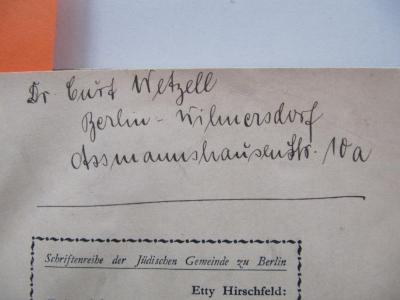 Dr. Curt Wetzell
Berlin-Wilmersdorf
Assmannshausen Str. 10a
Schriftenreihe der Jüdischen Gemeinde zu Berlin
Etty Hirschfeld: